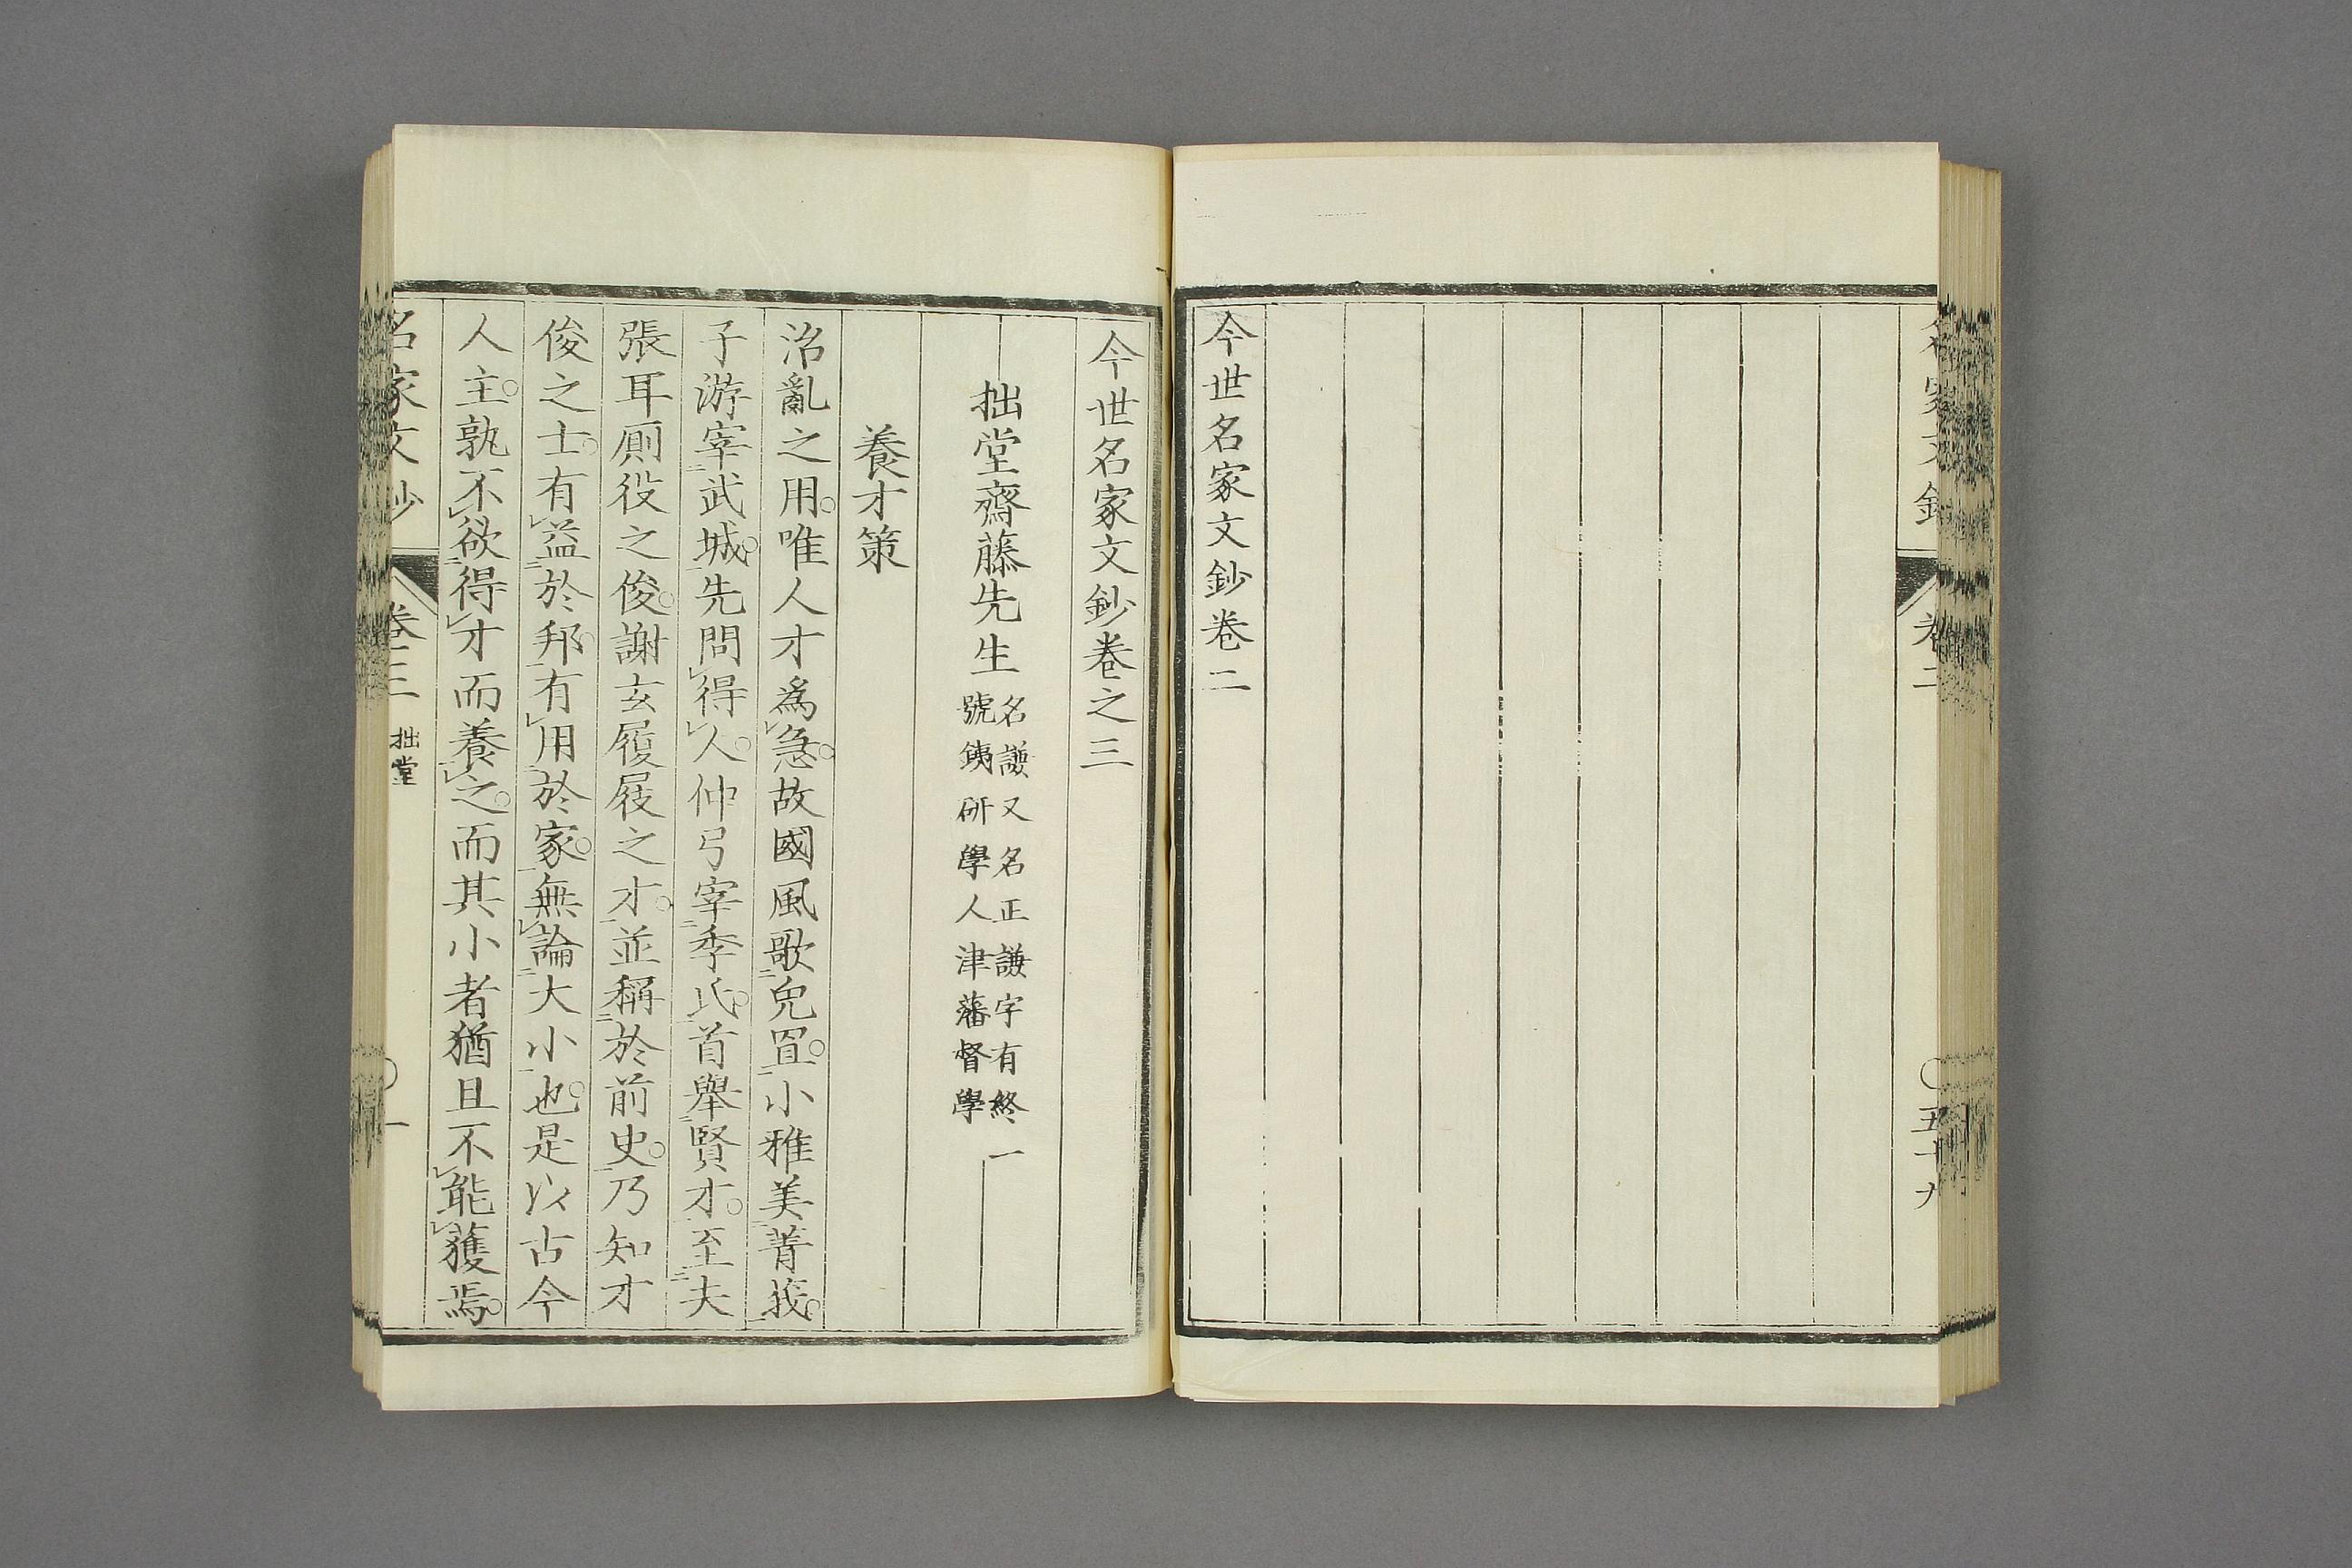 今世名家文鈔卷二
今世名家文鈔卷之三
拙堂齋藤先生
名謙又名正謙字有終一
號鐵研學人津藩督學
養才策
治亂之用。唯人才爲急。故國風歌兔罝。小雅美菁莪。
子游宰武城。先問得人。仲弓宰季氏。首舉賢才。至夫
張耳廝役之俊。謝玄履屐之才。並稱於前史。乃知才
俊之士。有益於邦。有用於家。無論大小也。是以古今
人主。孰不欲得才而養之。而其小者猶且不能獲焉。
名家文鈔 卷三 拙堂 〇一